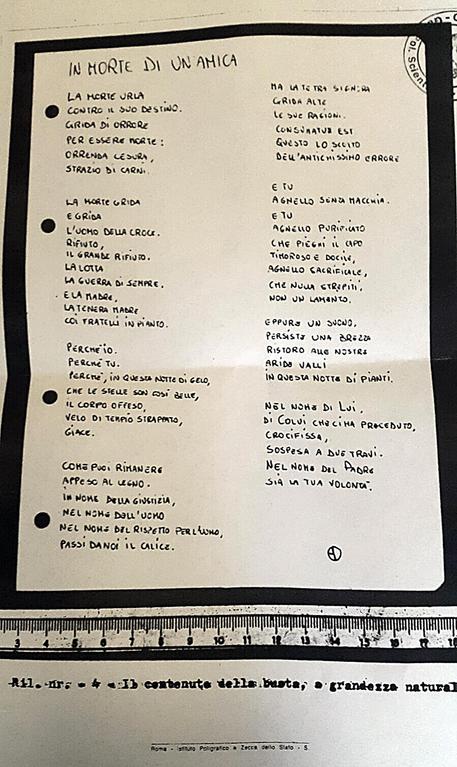 IN MORTE DI UN'AMICA
LA MORTE URLA
CONTRO IL SUO DESTINO.
GRIDA DI ORRORE
PER ESSERE MORTE:
ORRENDA CESURA,
STRAZIO DI CARNI.
LA MORTE GRIDA
E GRIDA
L'UOMO DELLA CROCE.
RIFIUTO,
IL GRANDE RIFIUTO.
LA LOTTA
LA GUERRA DI SEMPRE.
E LA MADRE,
LA TENERA MADRE
COI FRATELLI IN PIANTO.
PERCHÉ IO.
PERCHÉ TU.
PERCHÉ, IN QUESTA NOTTE DI GELO,
CHE LE STELLE SON COSÌ BELLE,
IL CORPO OFFESO,
VELO DI TEMPIO STRAPPATO,
GIACE.
COME PUOI RIMANERE
APPESO AL LEGNO.
IN NOME DELLA GIUSTIZIA,
NEL NOME DELL'UOMO
NEL NOME DEL RISPETTO PER L'UOMO,
PASSI DA NOI IL CALICE.
MA LA TETRA SIGNORA
GRIDA ALTE
LE SUE RAGIONI.
CONSUMATUM EST
QUESTO LO SCELTO
DELL'ANTICHISSIMO ERRORE
E TU
AGNELLO SENZA MACCHIA.
E TU
AGNELLO PURIFICATO
CHE PIEGHI IL CAPO
TIMOROSO E DOCILE,
AGNELLO SACRIFICALE,
CHE NULLA STREPITI,
NON UN LAMENTO.
EPPURE UN SUONO,
PERSISTE UNA BREZZA
RISTORO ALLE NOSTRE
ARIDE VALLI
IN QUESTA NOTTE DI PIANTI.
NEL NOME DI LUI,
DI COLUI CHE CI HA PRECEDUTO,
CROCIFISSA,
SOSPESA A DUE TRAVI.
NEL NOME DEL PADRE
SIA LA TUA VOLONTÀ.
3 4 5 6 7 8 9 10 11 12 13 14 15 16 17 18
Ril. nr. - 4 - Il contenuto della busta, a grandezza natural
Roma - Istituto Poligrafico e Zecca dello Stato - S.